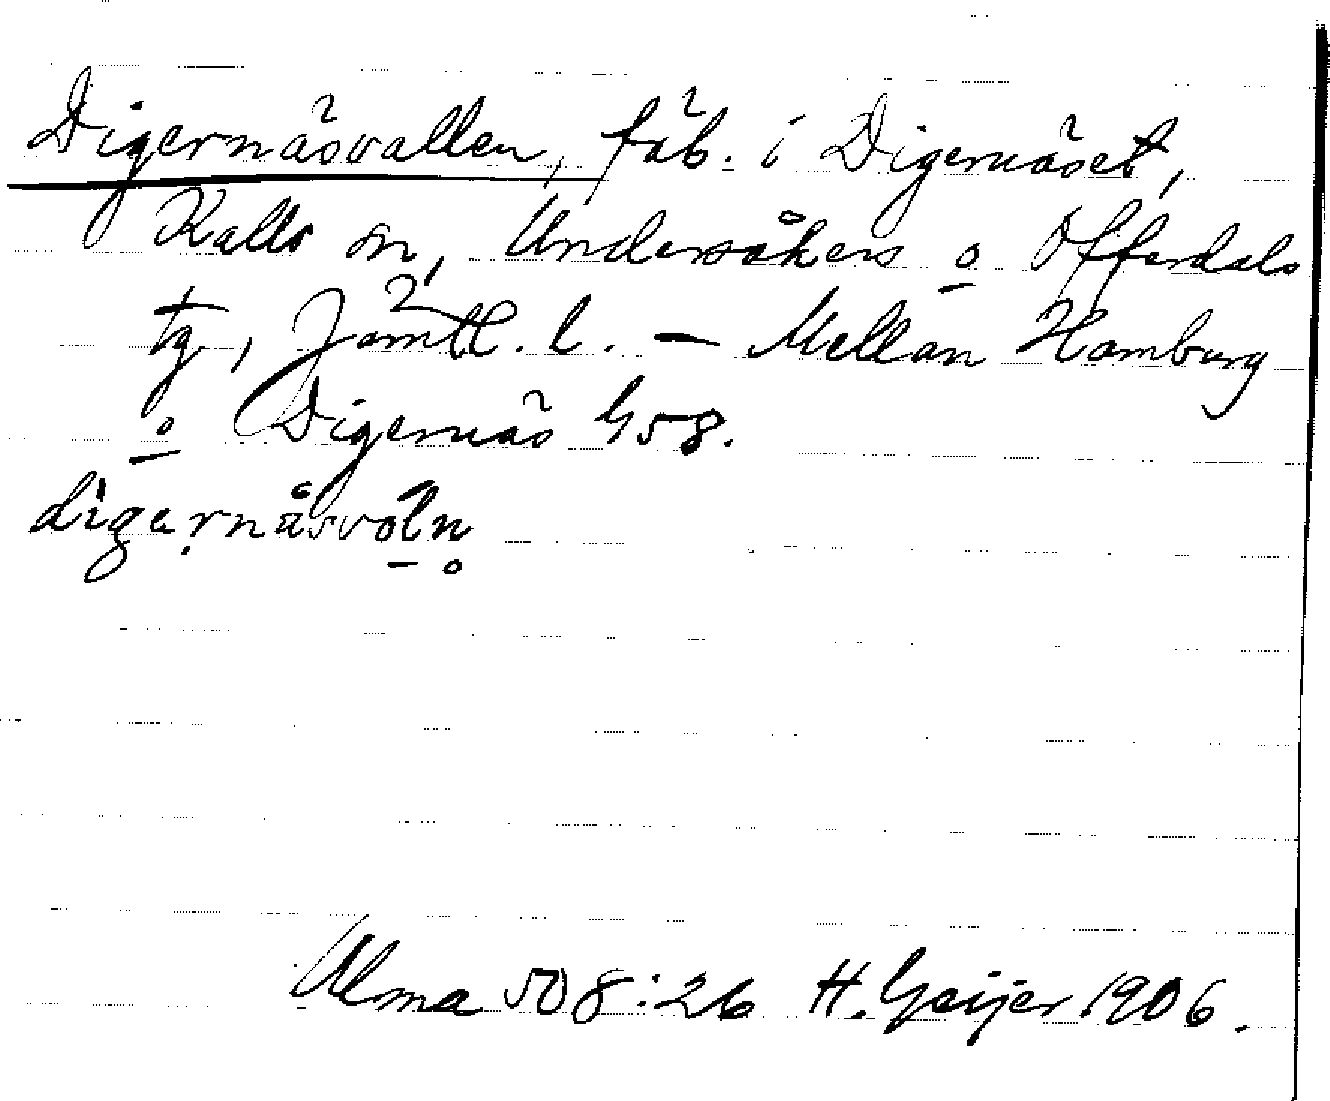 Digernäsvallen, fäb. i Digernäset,
Kalls sn, Undersåkers o Offerdals
tg, Jämtl. l. — Mellan Hamburg
o Digernäs G58.
digernäsvoln
Ulma 508:26 H. Geijer 1906.